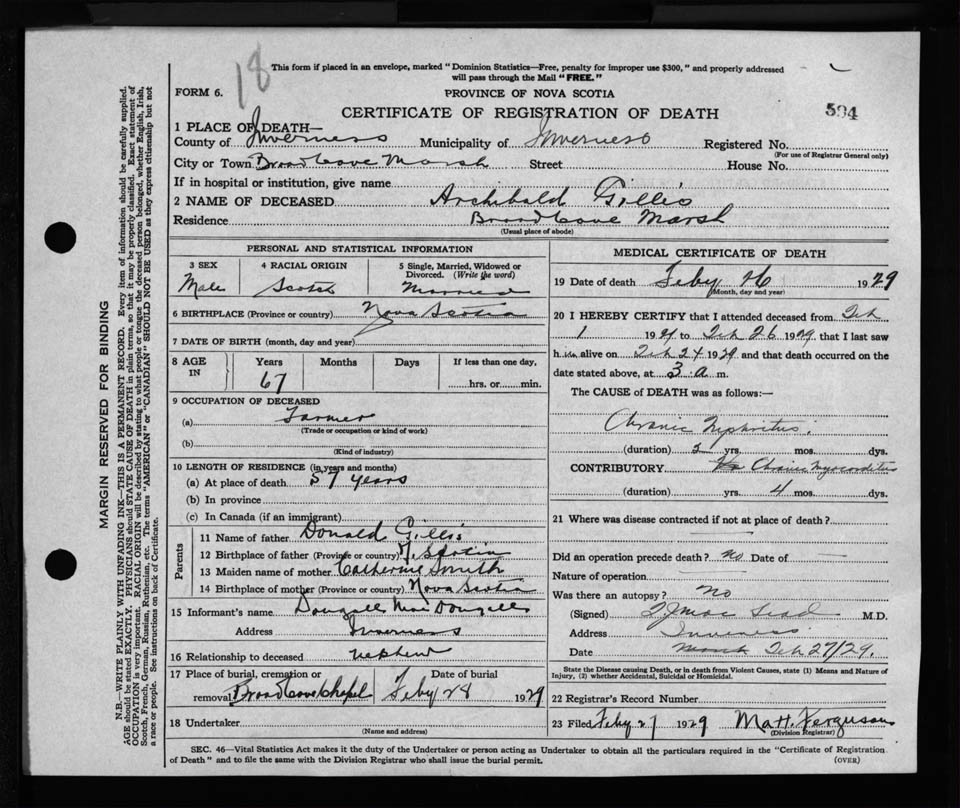 18
This form if placed in an envelope, marked "Dominion Statistics—Free, penalty for improper use $300," and properly addressed
will pass through the Mail "FREE."
FORM 6.
PROVINCE OF NOVA SCOTIA
CERTIFICATE OF REGISTRATION OF DEATH
594
1 PLACE OF DEATH—
County of Inverness Municipality of Inverness Registered No.
(For use of Registrar General only)
City or Town Broad Cove Marsh Street House No.
If in hospital or institution, give name
2 NAME OF DECEASED Archibald Gillis
Residence Broad Cove Marsh
(Usual place of abode)
PERSONAL AND STATISTICAL INFORMATION
3 SEX 4 RACIAL ORIGIN 5 Single, Married, Widowed or
Divorced. (Write the word)
Male Scotch Married
6 BIRTHPLACE (Province or country) Nova Scotia
7 DATE OF BIRTH (month, day and year)
8 AGE IN Years Months Days If less than one day,
67 hrs. or min.
9 OCCUPATION OF DECEASED
(a) Farmer
(Trade or occupation or kind of work)
(b)
(Kind of industry)
10 LENGTH OF RESIDENCE (in years and months)
(a) At place of death 57 years
(b) In province
(c) In Canada (if an immigrant)
Parents
11 Name of father Donald Gillis
12 Birthplace of father (Province or country) N. Scotia
13 Maiden name of mother Catherine Smith
14 Birthplace of mother (Province or country) Nova Scotia
15 Informant's name Dougall MacDougall
Address Inverness
16 Relationship to deceased nephew
17 Place of burial, cremation or Date of burial
removal Broad Cove Chapel Feby 28 1929
18 Undertaker
(Name and address)
MEDICAL CERTIFICATE OF DEATH
19 Date of death Feby 26 1929
(Month, day and year)
20 I HEREBY CERTIFY that I attended deceased from Feb
1 1929 to Feb 26 1929, that I last saw
h im alive on Feb 24 1929 and that death occurred on the
date stated above, at 3 a m.
The CAUSE of DEATH was as follows:—
Chronic Nephritis
(duration) 2 yrs. mos. dys.
CONTRIBUTORY Chronic Myocarditis
(duration) yrs. 4 mos. dys.
21 Where was disease contracted if not at place of death?
Did an operation precede death? no Date of —
Nature of operation —
Was there an autopsy? no
(Signed) M.D.
Address Inverness
Date Feb 27/29.
State the Disease causing Death, or in death from Violent Causes, state (1) Means and Nature of
Injury, (2) whether Accidental, Suicidal or Homicidal.
22 Registrar's Record Number
23 Filed Feby 27 1929 Matt. Ferguson
(Division Registrar)
SEC. 46—Vital Statistics Act makes it the duty of the Undertaker or person acting as Undertaker to obtain all the particulars required in the "Certificate of Registration
of Death" and to file the same with the Division Registrar who shall issue the burial permit.
(OVER)
MARGIN RESERVED FOR BINDING
N.B.—WRITE PLAINLY WITH UNFADING INK—THIS IS A PERMANENT RECORD. Every item of information should be carefully supplied.
AGE should be stated EXACTLY. PHYSICIANS should STATE CAUSE OF DEATH in plain terms, so that it may be properly classified. Exact statement of
OCCUPATION is very important. RACIAL ORIGIN will be described by stating to what people or tongue the deceased person belonged, whether English, Irish,
Scotch, French, German, Russian, Ruthenian, etc. The terms "AMERICAN" or "CANADIAN" SHOULD NOT BE USED as they express citizenship but not
a race or people. See instructions on back of Certificate.